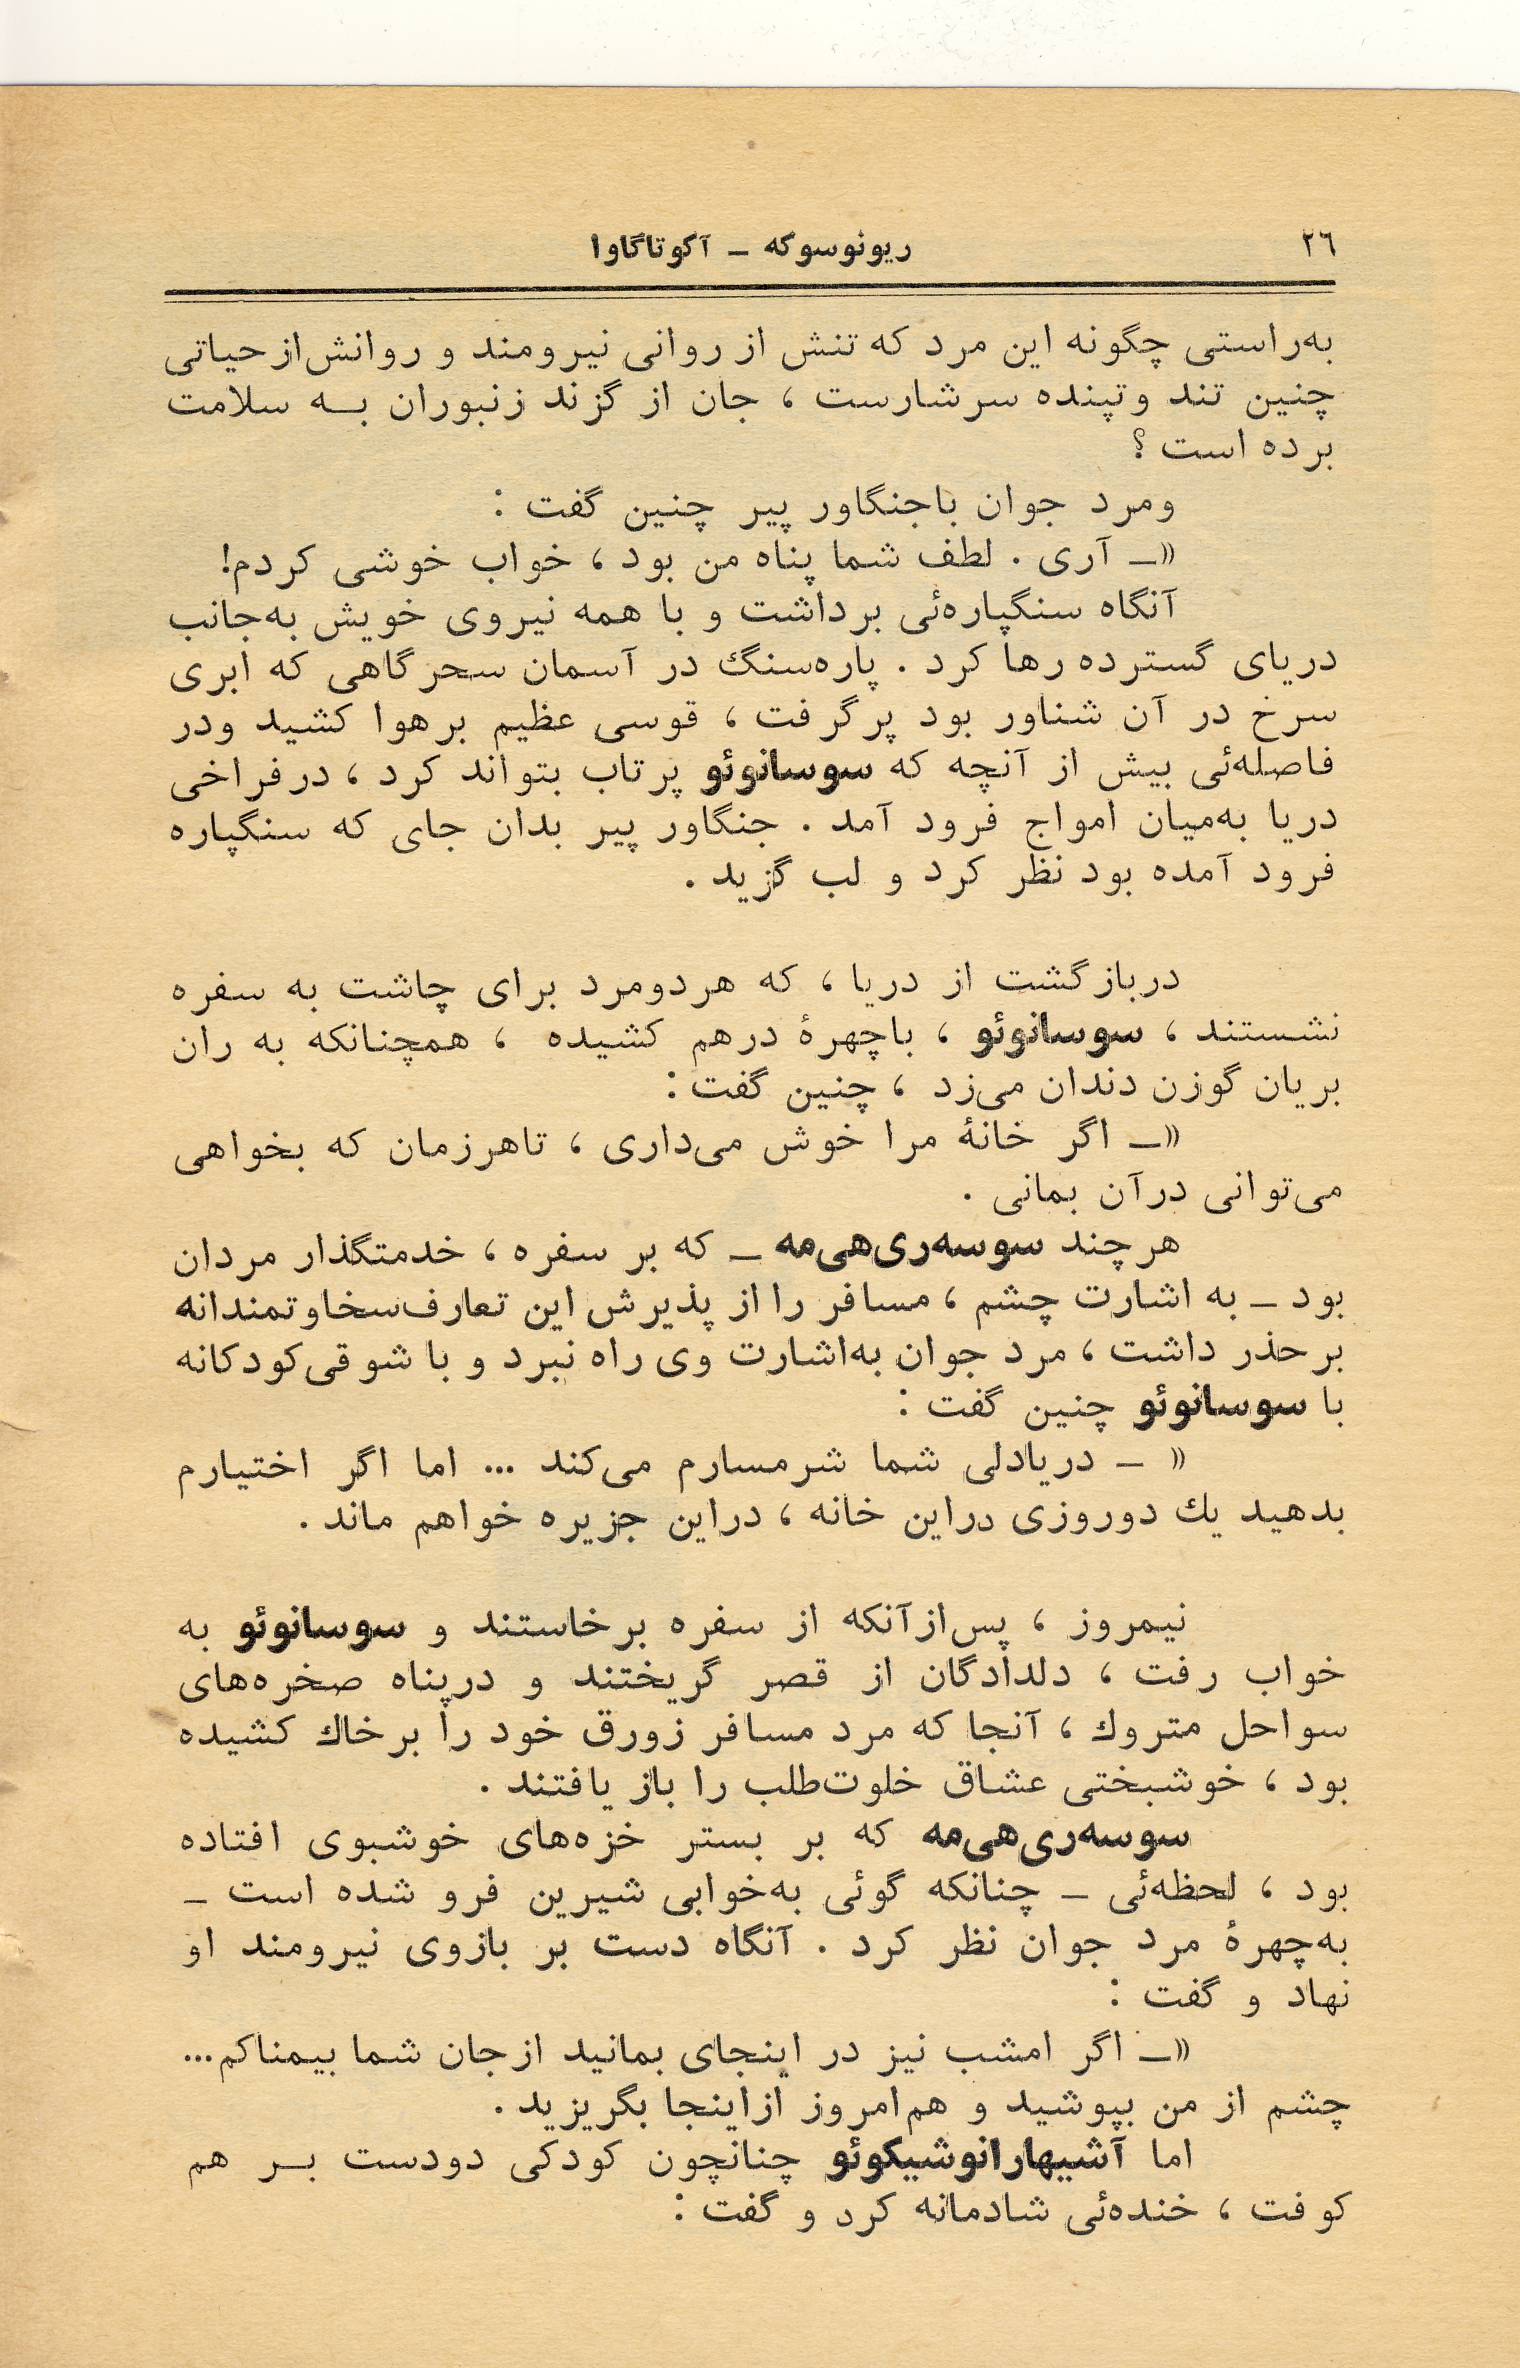 ٢٦
ریونوسوکه ـ آکوتاگاوا
به‌راستی چگونه این مرد که تنش از روانی نیرومند و روانش‌از حیاتی
چنین تند وتپنده سرشارست ، جان از گزند زنبوران بـه سلامت
برده است ؟
ومرد جوان باجنگاور پیر چنین گفت :
«ـ آری . لطف شما پناه من بود ، خواب خوشی کردم!
آنگاه سنگپاره‌ئی برداشت و با همه نیروی خویش به‌جانب
دریای گسترده رها کرد . پاره‌سنگ در آسمان سحرگاهی که ابری
سرخ در آن شناور بود پرگرفت ، قوسی عظیم برهوا کشید ودر
فاصله‌ئی بیش از آنچه که سوسانوئو پرتاب بتواند کرد ، درفراخی
دریا به‌میان امواج فرود آمد . جنگاور پیر بدان جای که سنگپاره
فرود آمده بود نظر کرد و لب گزید .
دربازگشت از دریا ، که هردومرد برای چاشت به سفره
نشستند ، سوسانوئو ، باچهرهٔ درهم کشیده ، همچنانکه به ران
بریان گوزن دندان می‌زد ، چنین گفت :
«ـ اگر خانهٔ مرا خوش می‌داری ، تاهرزمان که بخواهی
می‌توانی درآن بمانی .
هرچند سوسه‌ری‌هی‌مه ـ که بر سفره ، خدمتگذار مردان
بود ـ به اشارت چشم ، مسافر را از پذیرش این تعارف‌سخاوتمندانه
برحذر داشت ، مرد جوان به‌اشارت وی راه نبرد و با شوقی‌کودکانه
با سوسانوئو چنین گفت :
« ـ دریادلی شما شرمسارم می‌کند ... اما اگر اختیارم
بدهید یك دوروزی دراین خانه ، دراین جزیره خواهم ماند .
نیمروز ، پس‌ازآنکه از سفره برخاستند و سوسانوئو به
خواب رفت ، دلدادگان از قصر گریختند و درپناه صخره‌های
سواحل متروك ، آنجا که مرد مسافر زورق خود را برخاك کشیده
بود ، خوشبختی عشاق خلوت‌طلب را باز یافتند .
سوسه‌ری‌هی‌مه که بر بستر خزه‌های خوشبوی افتاده
بود ، لحظه‌ئی ـ چنانکه گوئی به‌خوابی شیرین فرو شده است ـ
به‌چهرهٔ مرد جوان نظر کرد . آنگاه دست بر بازوی نیرومند او
نهاد و گفت :
«ـ اگر امشب نیز در اینجای بمانید ازجان شما بیمناکم...
چشم از من بپوشید و هم‌امروز ازاینجا بگریزید .
اما آشیهارانوشیکوئو چنانچون کودکی دودست بـر هم
کوفت ، خنده‌ئی شادمانه کرد و گفت :